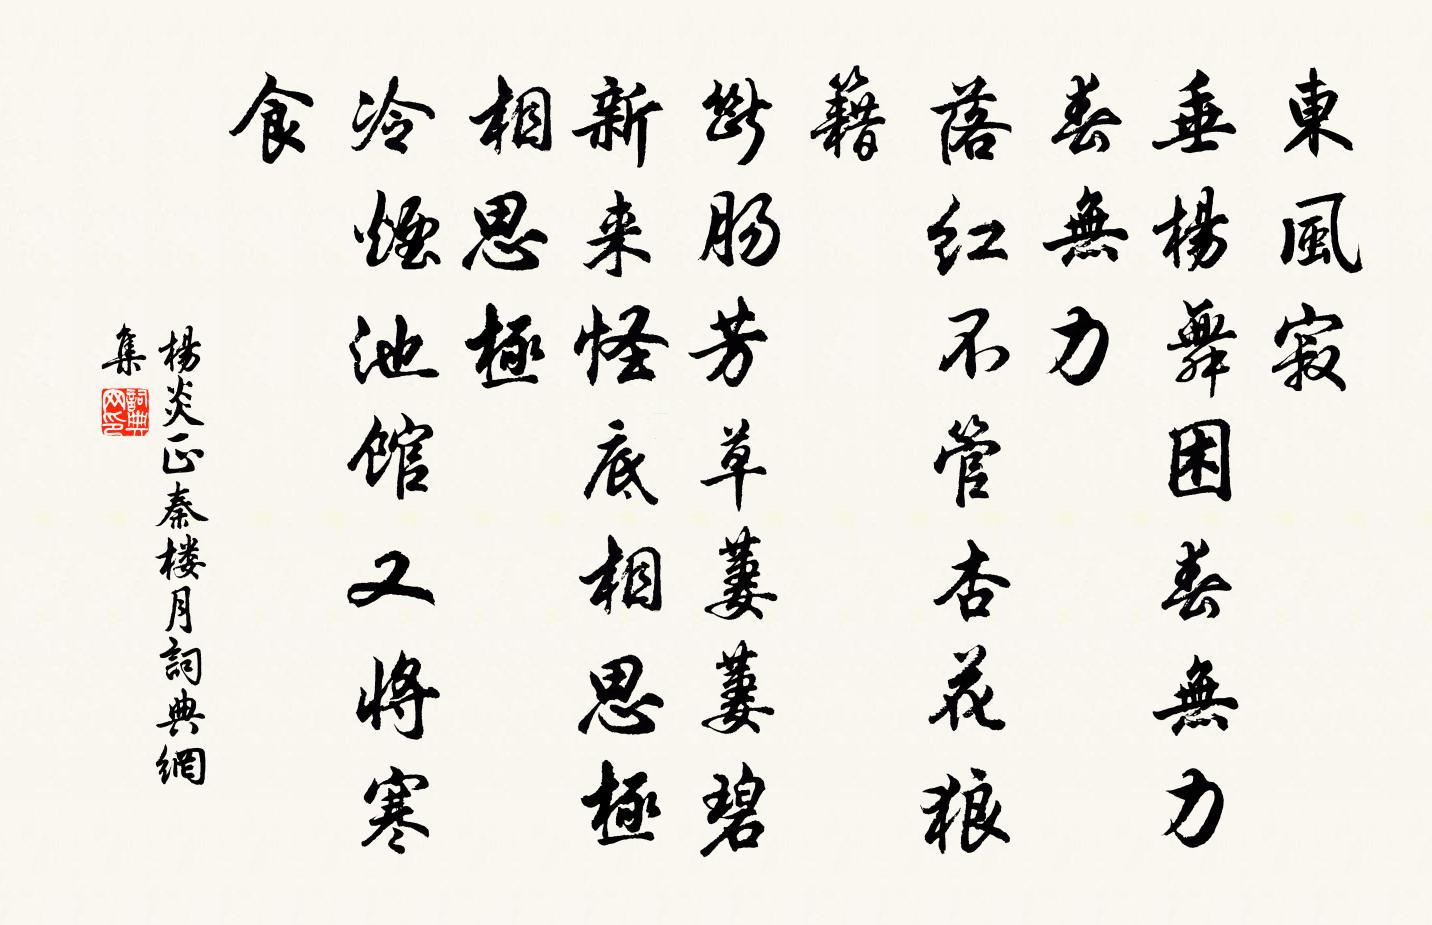 東風寂
垂楊舞困春無力
春無力
落紅不管杏花狼
籍
斷肠芳草萋萋碧
新来怪底相思極
相思極
冷煙池館又将寒
食
楊炎正秦楼月詞典網
集
詞典网印